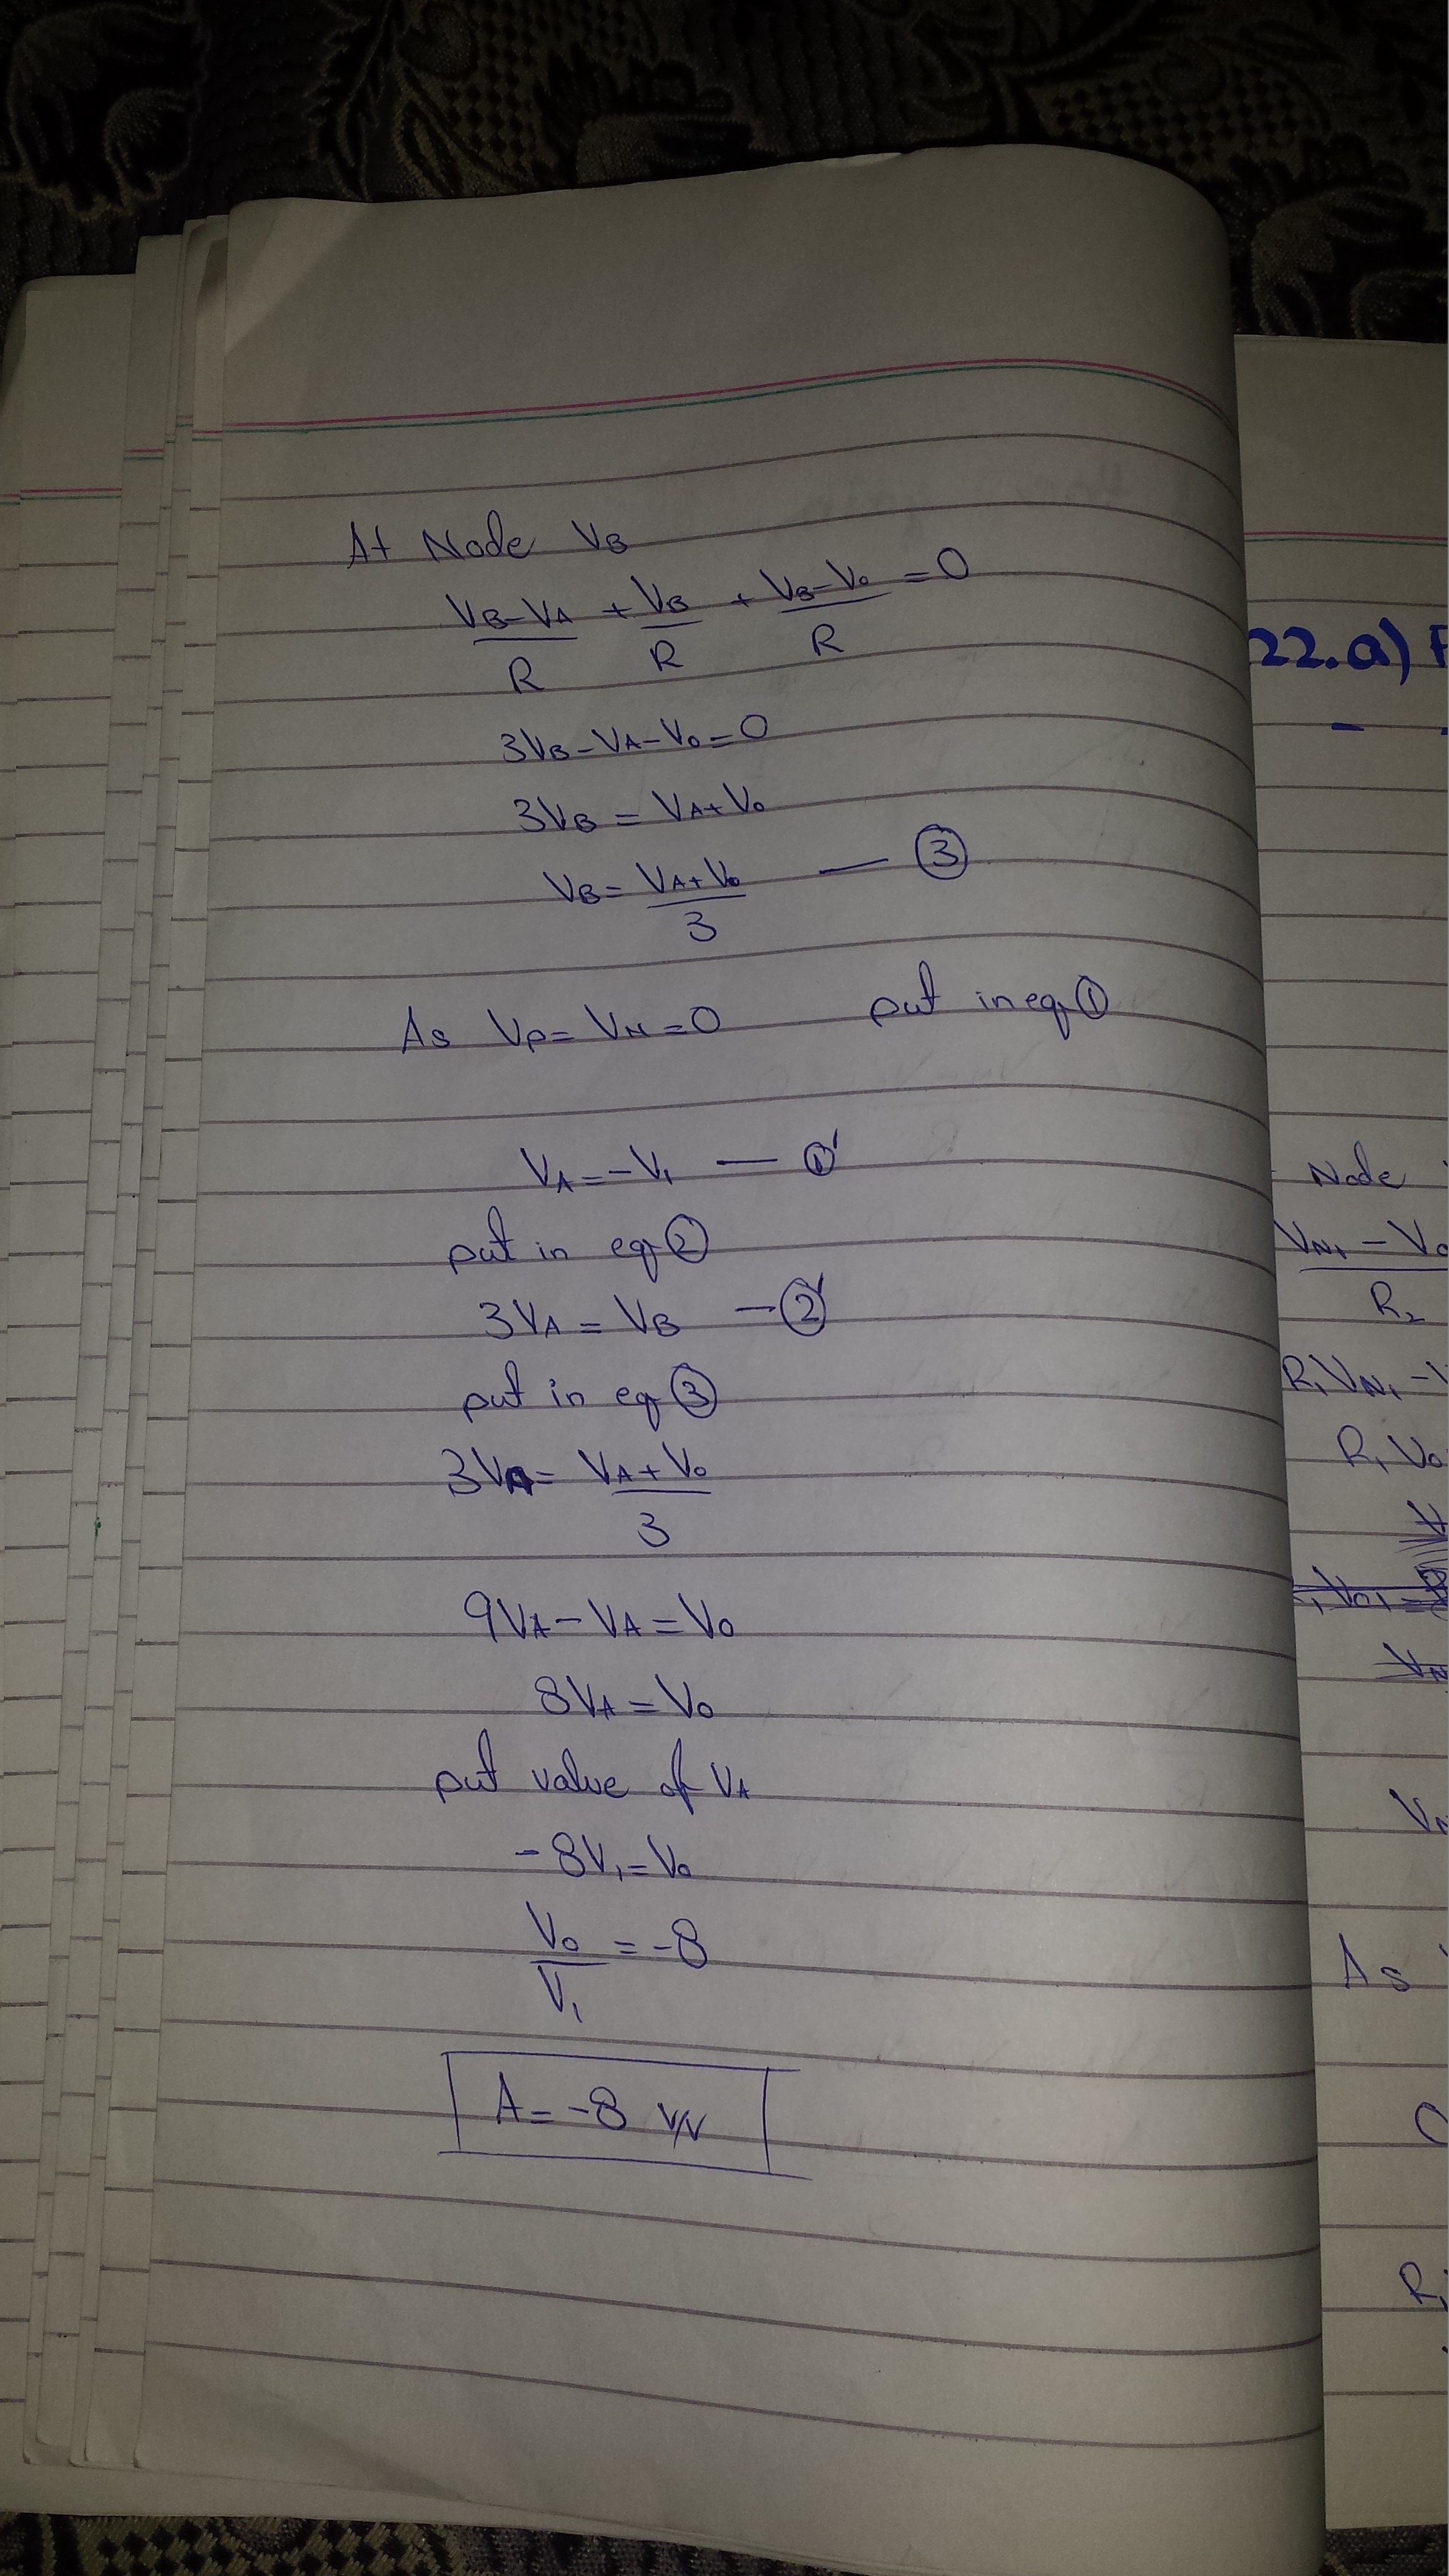 At Node VB
VB-VA/R + VB/R + VB-Vo/R = 0
3VB-VA-Vo=0
3VB = VA+Vo
VB = VA+Vo/3 — ③
As VP=VN=0 put in eq ①
VA=-V1 — ①'
put in eq ②
3VA = VB — ②'
put in eq ③
3VA= VA+Vo/3
9VA-VA=Vo
8VA=Vo
put value of VA
-8V1=Vo
Vo/V1 = -8
A=-8 V/V
22.a)
-
Node
VN1 - Vo
R2
R1VN1 -
R1 Vo
As